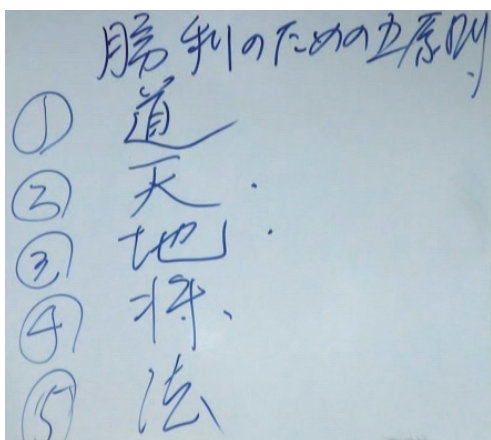 勝利のための五原則
① 道
② 天
③ 地
④ 将
⑤ 法